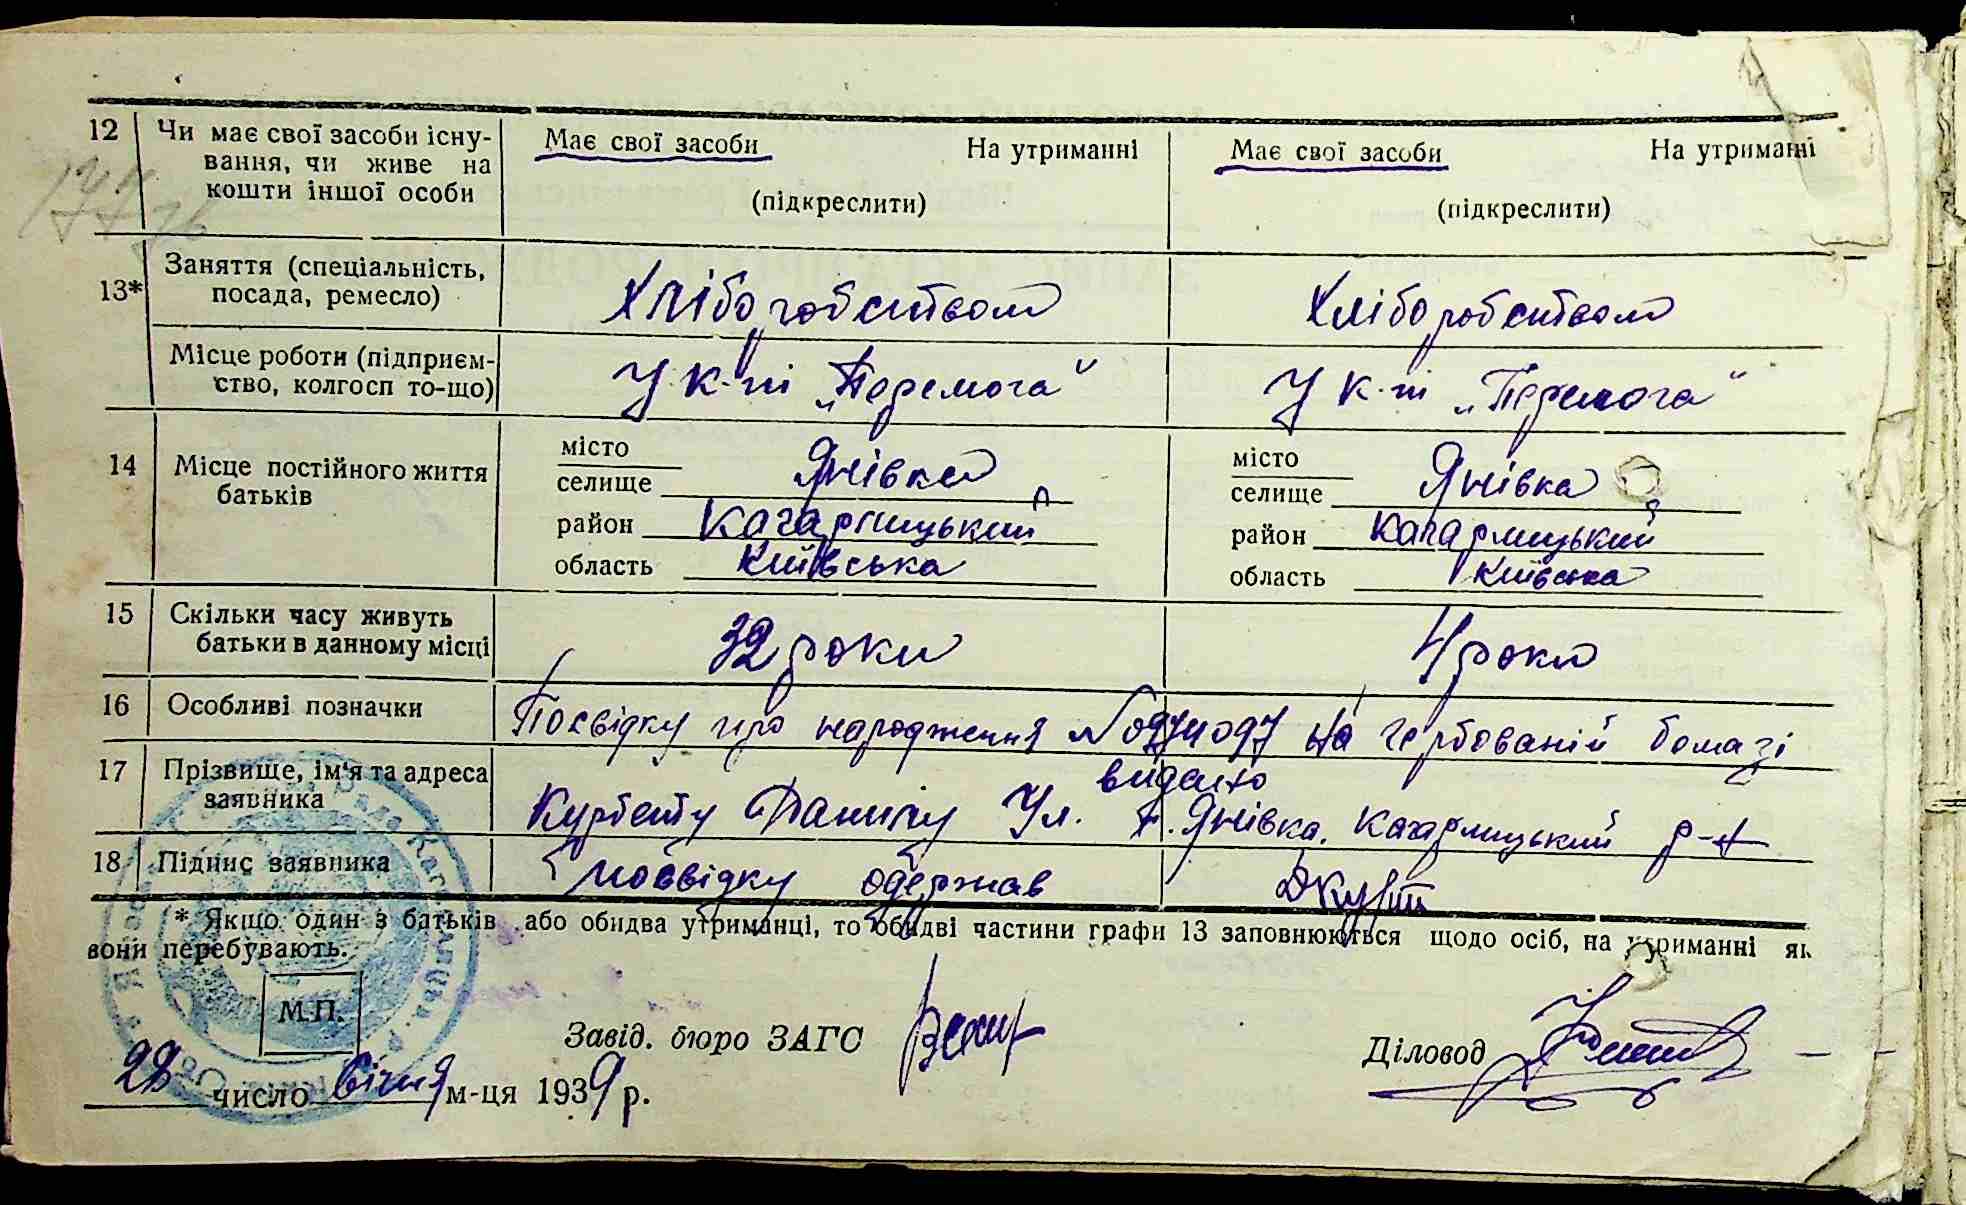 12 Чи має свої засоби існу- Має свої засоби На утриманні Має свої засоби На утриманні
вання, чи живе на
кошти іншої особи (підкреслити) (підкреслити)
13* Заняття (спеціальність, Хліборобством Хліборобством
посада, ремесло)
Місце роботи (підприєм- У к-пі „Перемога" У к-пі „Перемога"
ство, колгосп то-що)
14 Місце постійного життя місто Янівка місто Янівка
батьків селище селище
район Кагарлицький район Кагарлицький
область Київська область Київська
15 Скільки часу живуть 32 роки 4 роки
батьки в данному місці
16 Особливі позначки Посвідку про народження № 0974097 на гербованій бомазі
видано
17 Прізвище, ім'я та адреса
заявника Курбету Данилу Ул. Янівка, Кагарлицький р-н
18 Підпис заявника посвідку одержав ДКурт
* Якщо один з батьків або обидва утриманці, то обидві частини графи 13 заповнюються щодо осіб, на утриманні як
вони перебувають.
М.П.
Завід. бюро ЗАГС Діловод
28 число Січня м-ця 1939 р.